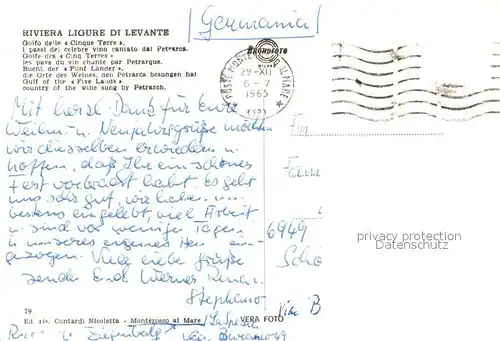 (Germania)
RIVIERA LIGURE DI LEVANTE
Golfo delle « Cinque Terre ».
I paesi del celebre vino cantato dal Petrarca.
Golfe des « Cinq Terres »
les pays du vin chanté par Petrarque.
Bucht der « Fünf Länder »
die Orte des Weines, den Petrarca besungen hat
Gulf of the « Five Lands »
country of the wine sung by Petrarch.
29-XII
6-7
1965
Mit herzl. Dank für Eure
Weihn- u. Neujahrsgrüße möchten
wir dieselben erwiedern u.
hoffen, daß Ihr ein schönes
Fest verbracht habt. Es geht
uns sehr gut, wir haben
bestens eingelebt, viel Arbeit
u. sind vor wenige Tagen
in unseres eigenes Heim ein-
gezogen. Viele liebe Grüße
sendet Euch Werner
Stephano
An
Fam
6949
Scho
privacy protection
Datenschutz
79
Ed. ris. Contardi Nicoletta - Monterosso al Mare
VERA FOTO
La Spezia
Via B